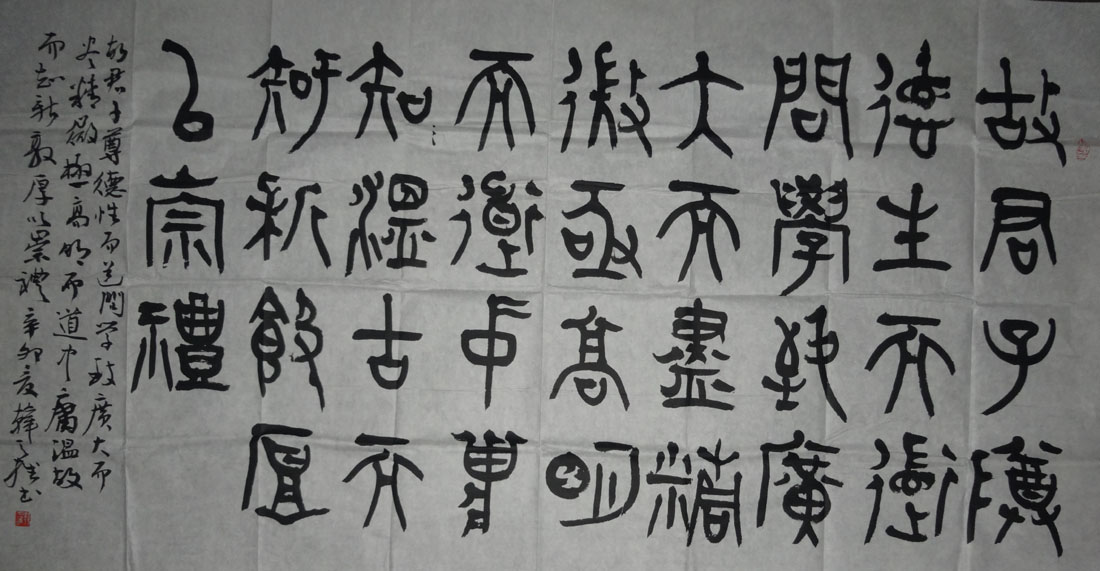 故君子尊
德生而道
問學致廣
大而盡精
微亟高明
而道中庸
知溫古而
知新敦厚
以崇禮
故君子尊德性而道問学致廣大而
尽精微極高明而道中庸温故
而知新敦厚以崇禮 辛卯夏韓书